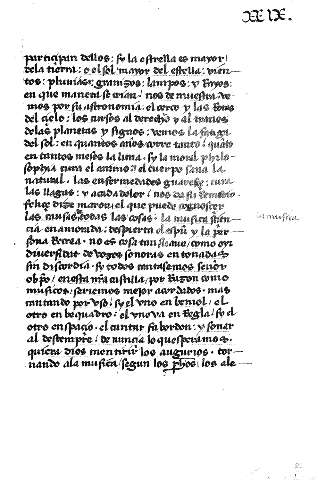 XXIX.
participan dellos: sy la estrella es mayor
dela tierra: o el sol mayor del estrella: vien
tos: pluuias: granizos: lampos: y Rayos:
en que manera se crian: nos demuestra: ve
mos por su astronomia. el cerco y las
del cielo: los cursos al derecho y al traues
delas planetas y signos: vemos la
del sol: en quantos años corre tanto: quāto
en tantos meses la luna. sy la moral philo
sophia cura el animo: el cuerpo sana la
natural. las enfermedades cura
las llagas: y acada dolor: nos da su Remedio
felice dize maron: el que puede cognoscer
las musas todas las cosas. la musica
en armonia: despierta el espū y la per
sona Recrea. no es cosa tan suaue, como oyr
diuersidat de vozes sonoras en tonadas
sin discordia. sy todos cantasemos señor
obpo/ en esta nr̄a castilla, por Razon como
musicos/ seriemos mejor acordados. mas
cantando por vso/ sy el vno en bemol/ el
otro en bequadro: el vno va en Regla/ sy el
otro en spaçio. el cantar fabordon: y sonar
al destempre/ denuncia lo que speramos.
quiera dios mentir los augurios. tor
nando ala musica/ segun los phos/ los ele
la musica